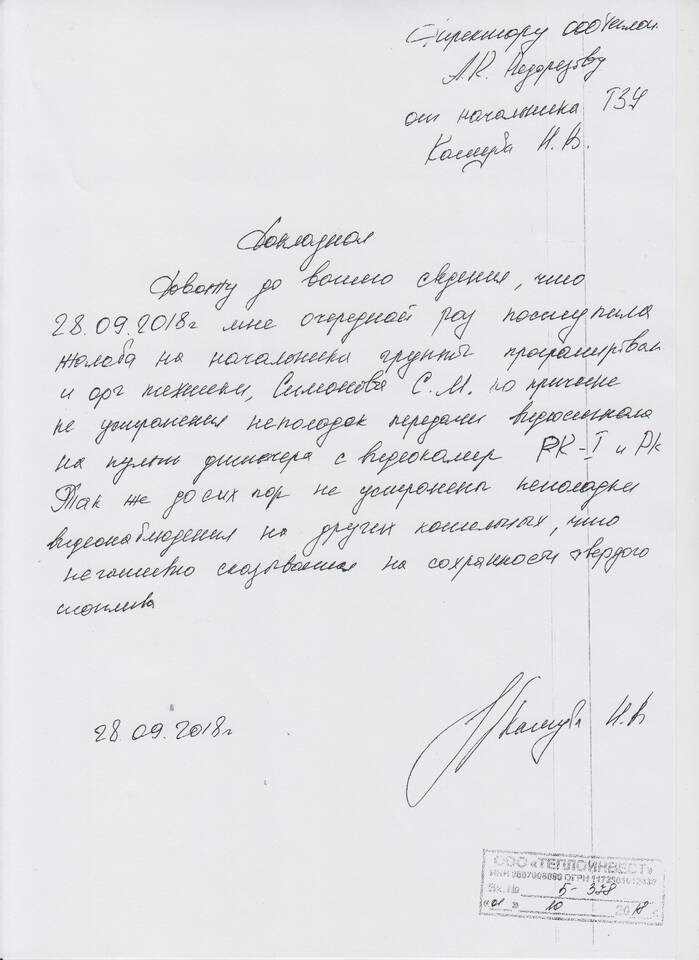 Директору
А.К. Недорезову
от начальника ТЗУ
Кашуба Н.В.
Докладная
Довожу до вашего сведения, что
28.09.2018г мне очередной раз поступила
жалоба на начальника группы
и орг техники, Симонова С.М. по причине
не устранения неполадок передачи видеосигнала
на пульт диспечера с видеокамер РК-I и РК
Так же до сих пор не устранены неполадки
видеонаблюдения на других котельных, что
негативно сказывается на сохранности твердого
топлива
28.09.2018г
Кашуба Н.В
ООО «ТЕПЛОИНВЕСТ»
ИНН ОГРН
Вх.№ 5-378
«01» 10 2018 г.